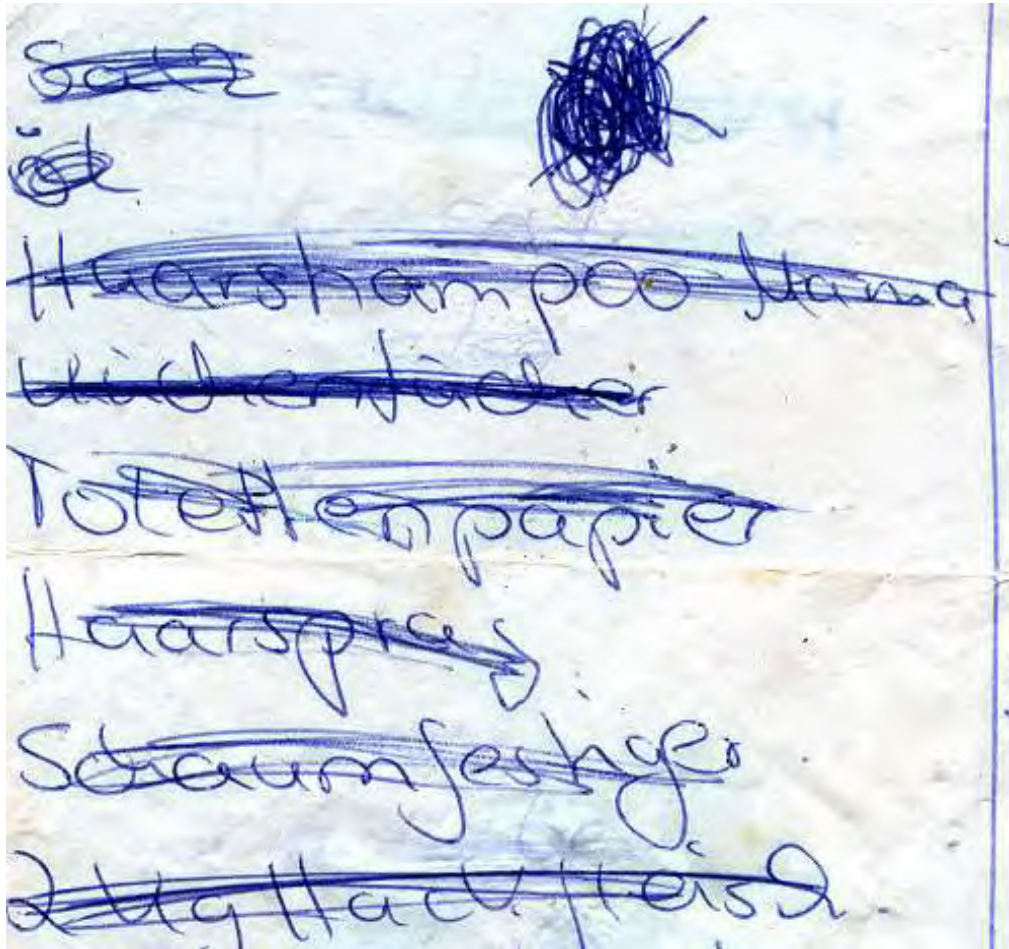 Salz
Öl
Haarshampoo Mama
Küchentücher
Toilettenpapier
Haarspray
Schaumfestiger
2 Kg Hackfleisch